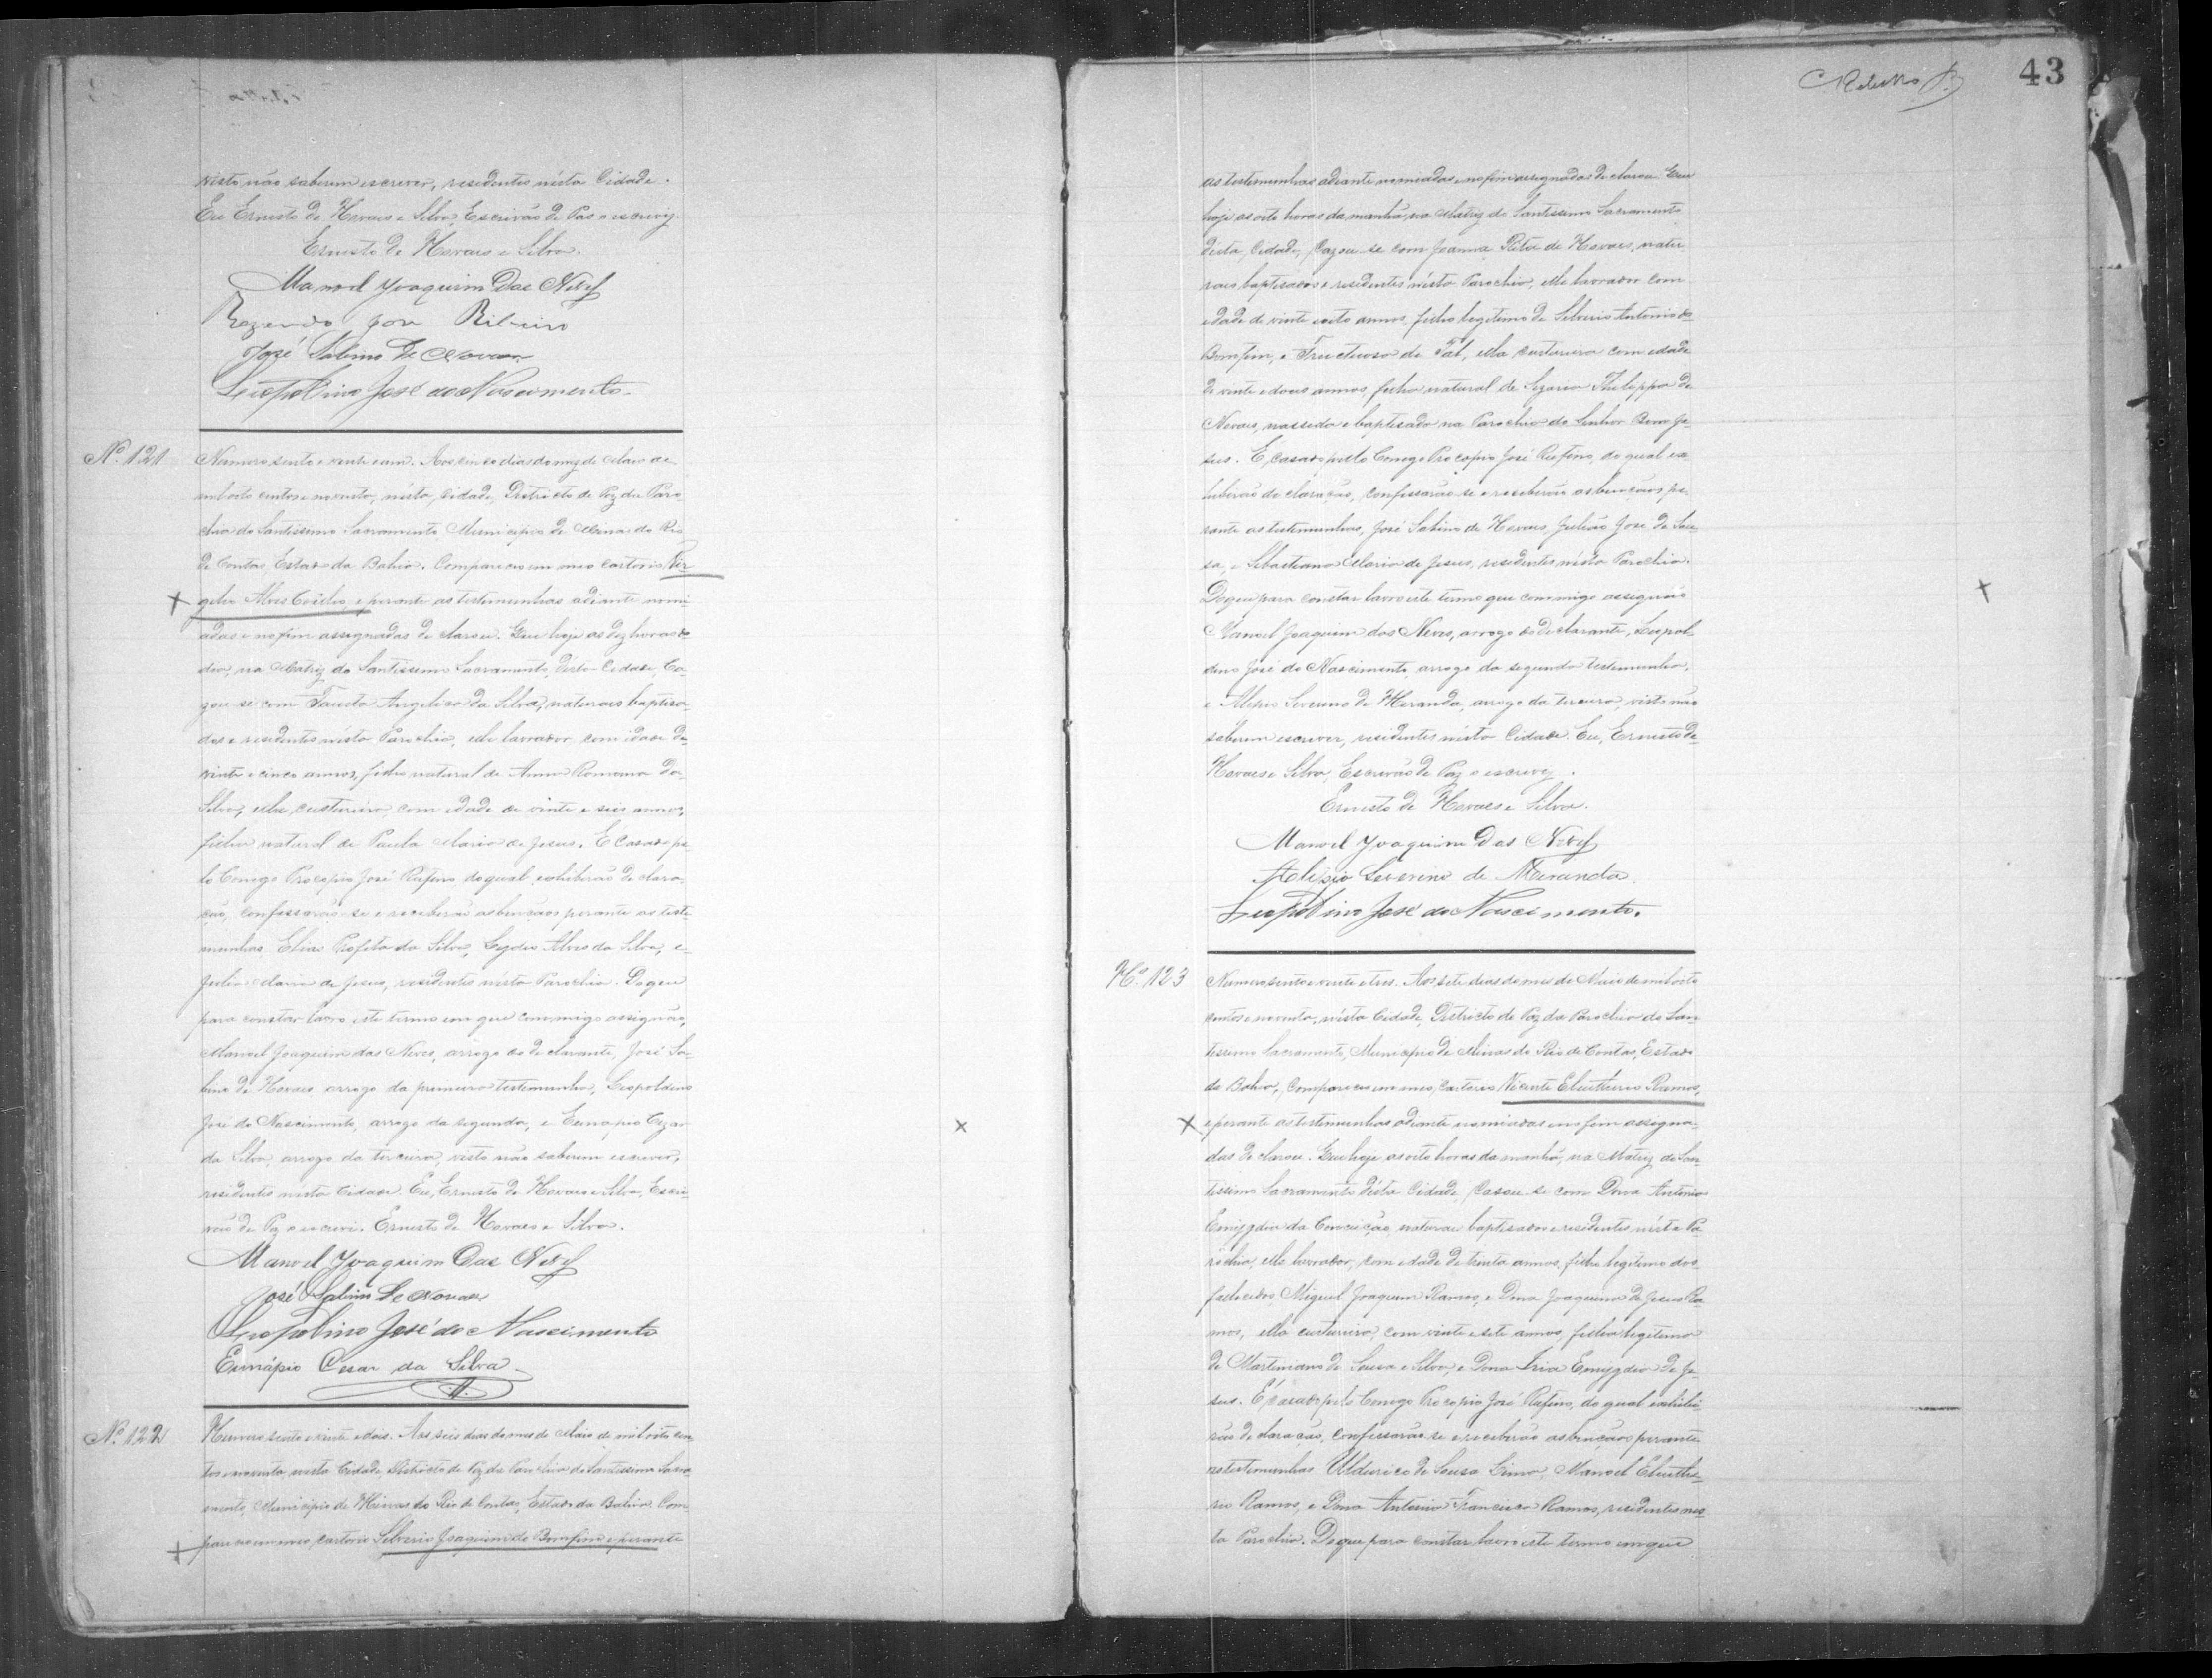 visto não saberem escrever, residentes nésta Cidade.
Eu Ernesto de Novaes e Silva, Escrivão de Paz o escrevy.
Ernesto de Novaes e Silva.
Manoel Joaquim Das Neves
José Ribeiro
José Sabino de Novaes
Leopoldino José do Nascimento.
Nº 121
Numero sento e vente eum. Aos cinco dias do mez de Maio de
mil oito centos e noventa, nésta Cidade, Destricto de Paz da Paro
chia do Santissimo Sacramento Municipio de Minas do Rio
de Contas, Estado da Bahia. Compareceu em meo cartorio
Alves Coelho, e perante as testemunhas adiante nomi
adas e no fim assignadas declarou. Que hoje as dez horas do
dia, na Matriz do Santissimo Sacramento, désta Cidade, Ca-
zou-se com Fausta Angelica da Silva, naturaes baptisa-
dos e residentes nésta Parochia, elle lavrador com idade de
vinte e cinco annos, filho natural de Anna Romana da
Silva, ella custureira com edade de vinte e seis annos,
filha natural de Paula Maria de Jesus. E Casados pe
lo Conego Procopio José Rufino do qual exhiberão declara-
ção, confessarão-se e receberão as bençãos perante as teste
munhas Elias Profeta da Silva, Lydio Alves da Silva, e
Julia Maria de Jesus, residentes nésta Parochia. Do que
para constar lavro este termo em que commigo assignão,
Manoel Joaquim das Neves, arrogo do declarante, José Sa-
bino de Novaes arrogo da primeira testemunha, Leopoldino
José do Nascimento, arrogo da segunda, e Eunapio Cezar
da Silva, arrogo da terceira, visto não saberem escrever,
residentes nésta Cidade. Eu, Ernesto de Novaes e Silva, Escri
vão de Paz o escrevi. Ernesto de Novaes e Silva.
Manoel Joaquim Das Neves
José Sabino de Novaes
Leopoldino José do Nascimento
Eunápio Cesar da Silva
Nº 122
Numero sento e vinte e dois. Aos seis dias do mes de Maio de mil oito cen
tos e noventa nesta Cidade, Destricto de Paz da Parochia do Santissimo Sacra
mento, Municipio de Minas do Rio de Contas, Estado da Bahia. Com
pareceo em meo cartorio Silverio Joaquim do Bomfim e perante
43
as testemunhas adiante nomeadas e no fim assignadas declarou. Que
hoje as oito horas da manhã, na Matriz do Santissimo Sacramento
désta Cidade, Cazou-se com Joanna Rita de Novaes, natu
raes baptisados e residentes nésta Parochia, elle lavrador com
edade de vinte e oito annos, filho legitimo de Silverio Antonio do
Bomfim, e Fructuosa de Tal, ella custureira com edade
de vinte e dous annos, filha natural de Philippa de
Novaes, nassida e baptisada na Parochia do Senhor Bom Je-
sus. E, casados pello Conego Procopio José Rufino, do qual ex
hiberão declaração, confessarão-se e receberão as bençãos pe-
rante as testemunhas, José Sabino de Novaes, Julião José de Sou-
sa, e Sebastiana Maria de Jesus, residentes nésta Parochia.
Do que para constar lavro este termo que commigo assignão
Manoel Joaquim das Neves, arrogo do declarante, Leopol-
dino José do Nascimento, arrogo da segunda testemunha,
e Severino de Miranda, arrogo da terceira, visto não
saberem escrever, residentes nésta Cidade. Eu, Ernesto de
Novaes e Silva, Escrivão de Paz o escrevy.
Ernesto de Novaes e Silva.
Manoel Joaquim Das Neves
Severino de Miranda
Leopoldino José do Nascimento.
Nº 123
Numero sento e vente e tres. Aos sete dias do mes de Maio de mil oito
centos e noventa, nésta Cidade, Destricto de Paz da Parochia do San
tissimo Sacramento, Municipio de Minas do Rio de Contas, Estado
da Bahia, compareceu em meo, Cartorio Vicente Eleutherio Ramos,
e perante as testemunhas adiante nomiadas e no fim assigna-
das declarou. Que hoje as oito horas da manhã, na Matriz do San-
tissimo Sacramento désta Cidade, Casou-se com Dona Antonia
Emygdia da Conceição, naturaes baptisados e residentes nésta Pa
rochia, elle lavrador, com edade de trinta annos, filho legitimo dos
falecidos, Miguel Joaquim Ramos, e Dona Joaquina de Jesus Ra-
mos, ella custureira, com vinte e sete annos, filha legitima
de Martiniano de Sousa e Silva, e Dona Iria Emygdia de Je-
sus. E, casados pelo Conego Procopio José Rufino, do qual exhibi
rão declaração, confessarão-se e receberão as bençãos perante
as testemunhas Ulderico de Sousa Lima, Manoel Eleuthe-
rio Ramos, e Dona Antonia Francisca Ramos, residentes nes-
ta Parochia. Do que para constar lavro este termo em que